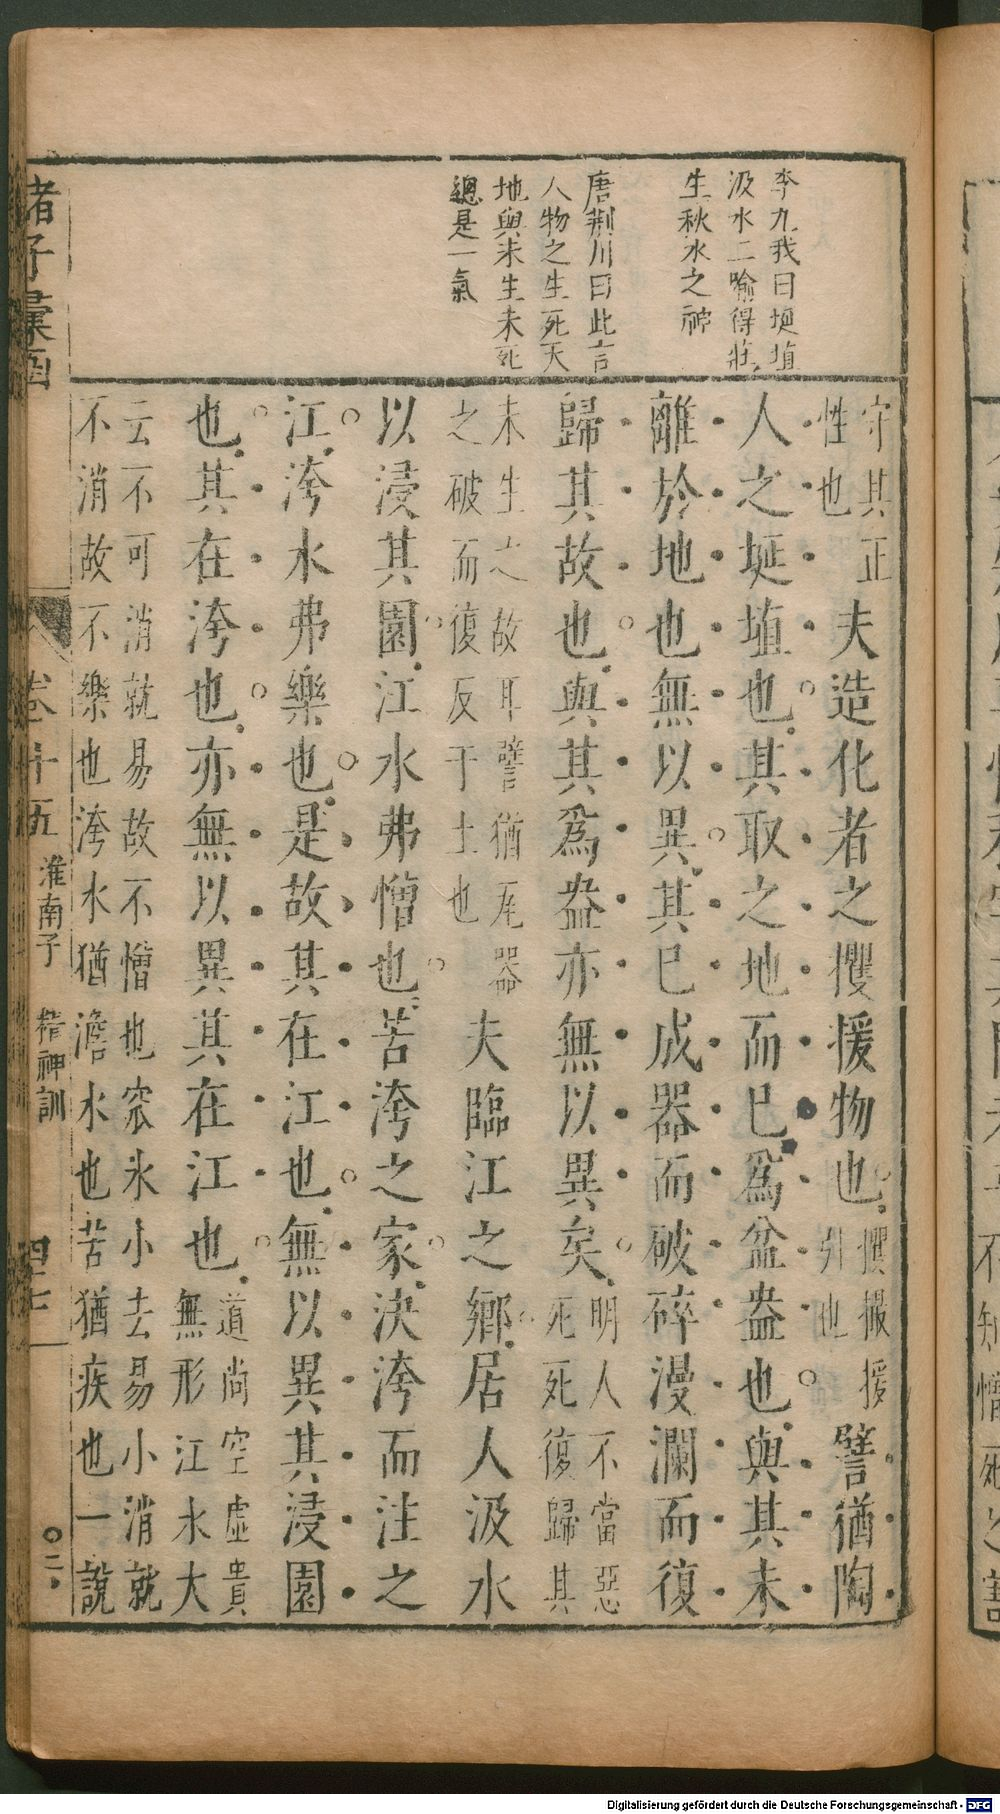 李九我曰埏埴
汲水二喻得莊
生秋水之神
唐荊川曰此言
人物之生死天
地與未生未死
總是一氣
守其正
性也
夫造化者之攫援物也
攫撮援
引也
譬猶陶
人之埏埴也其取之地而已為盆盎也與其未
離於地也無以異其已成器而破碎漫瀾而復
歸其故也與其為盎亦無以異矣
明人不當惡
死死復歸其
未生之故耳譬猶瓦器
之破而復反于土也
夫臨江之鄉居人汲水
以浸其園江水弗憎也苦洿之家決洿而注之
江洿水弗樂也是故其在江也無以異其浸園
也其在洿也亦無以異其在江也
道尚空虛貴
無形江水大
云不可消就易故不憎也窊水小去易小消就
不消故不樂也洿水猶澹水也苦猶疾也一說
諸子彙函
卷十五
淮南子
精神訓
四十七
〇二
Digitalisierung gefördert durch die Deutsche Forschungsgemeinschaft - DFG